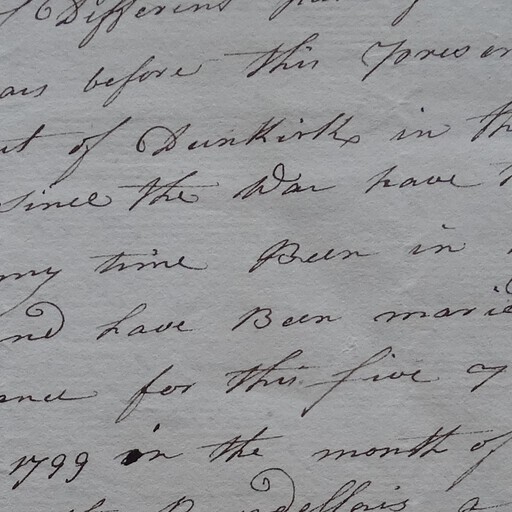 Different
before this presen
ut of Dunkirk in th
since the War have
my time Been in
nd have Been marie
for this five y
1799 in the month of